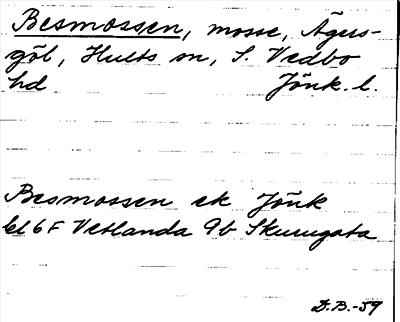 Besmossen, mosse, Ågers-
göl, Hults sn, S. Vedbo
hd Jönk. l.
Besmossen ek Jönk
bl 6F Vetlanda 9b Skurugata
D.B.-59